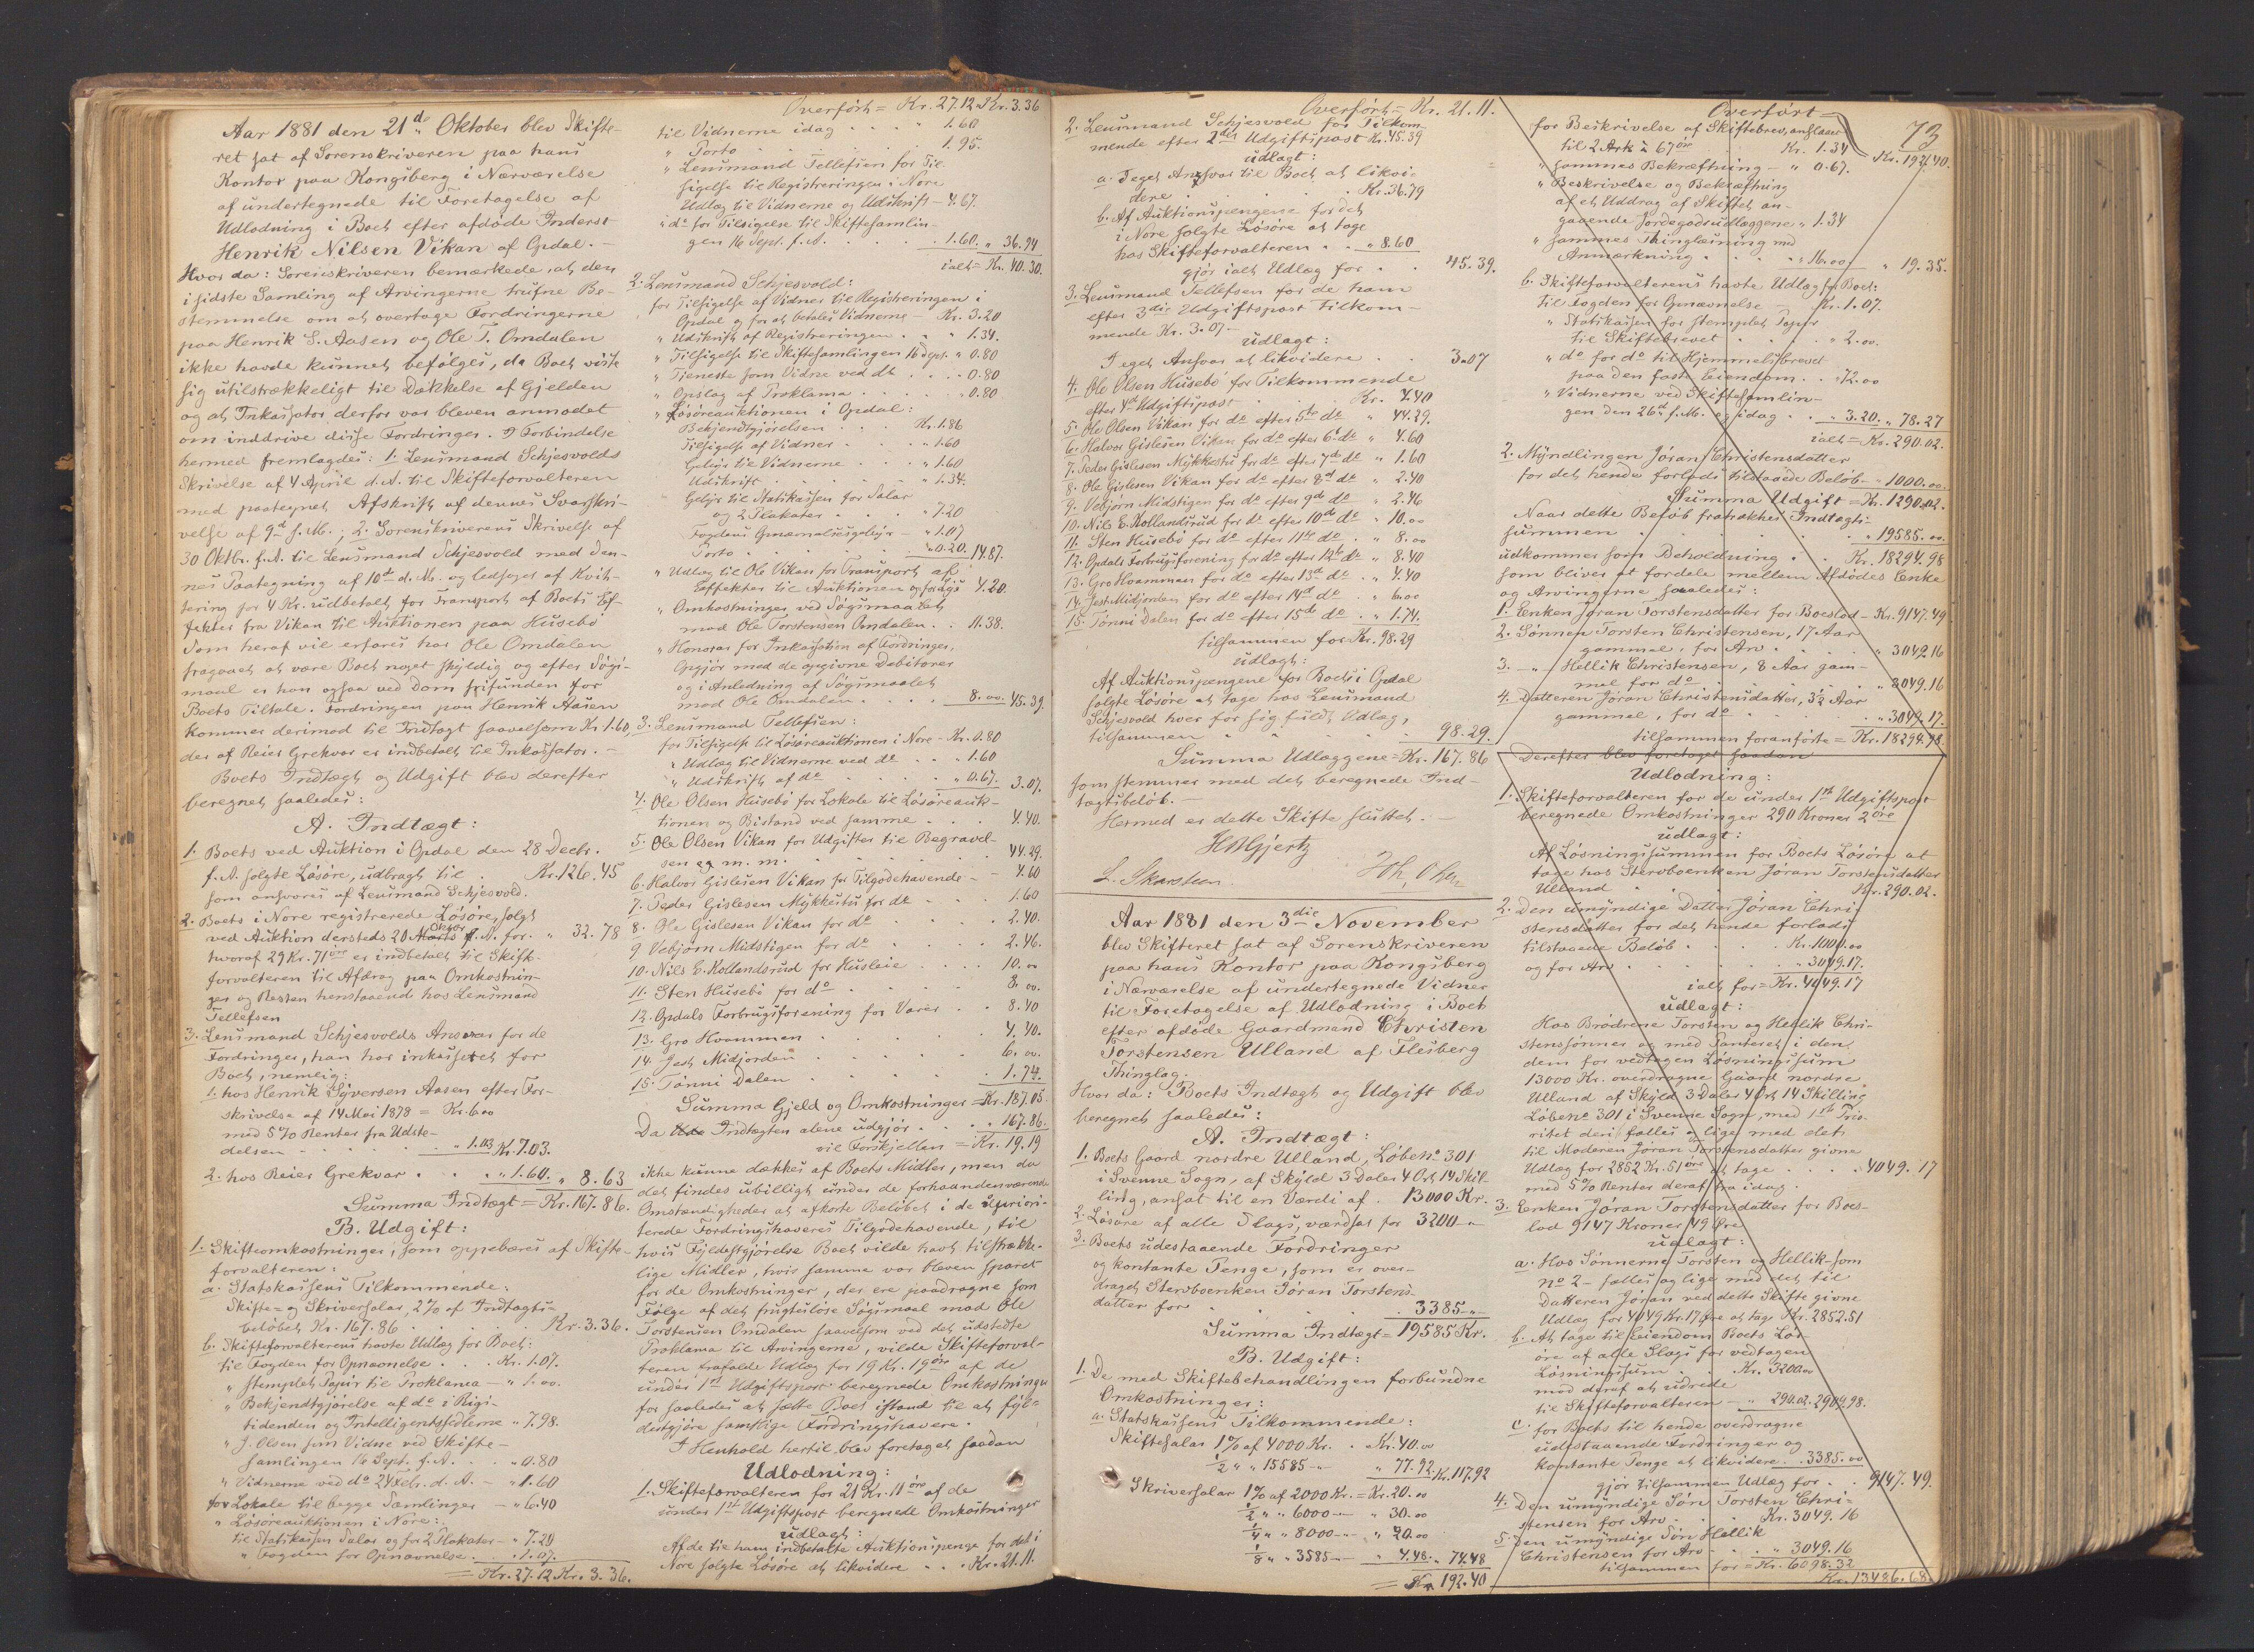 Aar 1881 den 21de Oktober blev Skifte-
ret sat af Sorenskriveren paa hans
Kontor paa Kongsberg i Nærværelse
af undertegnede til Foretagelse af
Udlodning i Boet efter afdøde Inderst
Henrik Nilsen Vikan af Opdal. -
Hvor da: Sorenskriveren bemærkede, at den
i sidste Samling af Arvingerne trufne Be-
stemmelse om at overtage Fordringerne
paa Henrik S. Aasen og Ole T. Omdalen
ikke havde kunnet befølges, da Boet viste
sig utilstrækkeligt til Dækkelse af Gjelden
og at Inkassator derfor var bleven anmodet
om inddrive disse Fordringer. I Forbindelse
hermed fremlagdes: 1. Lensmand Schjesvolds
Skrivelse af 4 April d.A. til Skifteforvalteren
med paategnet Afskrift af dennes Svarskri-
velse af 9d s.M.; 2. Sorenskriverens Skrivelse af
30 Oktbr. f.A. til Lensmand Schjesvold med den-
nes Paategning af 10de d.M. og ledsaget af Kvit-
tering for 4 Kr. udbetalt for Transport af Boets Ef-
fekter fra Vikan til Auktionen paa Husebø
Som heraf vil erfares har Ole Omdalen
fragaaet at være Boet noget skyldig og efter Søgs-
maal er han ogsaa ved Dom frifunden for
Boets Tiltale. Fordringen paa Henrik Aasen
kommer derimod til Indtægt saavelsom Kr 1.60,
der af Reier Grekvar er indbetalt til Inkassator. -
Boets Indtægt og Udgift blev derefter
beregnet saaledes:
A. Indtægt:
1. Boets ved Auktion i Opdal den 28 Decbr.
f.A. solgte Løsøre, udbragt til . Kr. 126.45
som ansvares af Lensmand Schjesvold.
2. Boets i Nore registrerede Løsøre, solgt
Oktbr
ved Auktion dersteds 20 Marts f.A. for. " 32.78
hvoraf 29 Kr. 71 øre er indbetalt til Skift-
forvalteren til Afdrag paa Omkostnin-
ger og Resten henstaaende hos Lensmand
Tellefsen
3. Lensmand Schjesvolds Ansvar for de
Fordringer, han har inkasseret for
Boet, nemlig:
1. hos Henrik Syversen Aasen efter For-
skrivelse af 14 Mai 1878 = Kr. 6.00
med 5% Renter fra Udste-
delsen - - - " 1.03 Kr. 7.03.
2. hos Reier Grekvar . . . " 1.60. " 8.63
Summa Indtægt = Kr. 167.86.
B. Udgift:
1. Skifteomkostninger, som oppebæres af Skifte-
forvalteren:
a. Statskassens Tilkommende:
Skifte- og Skriversalar, 2% af Indtægts-
beløbet Kr. 167.86 . . . Kr. 3.36.
b. Skifteforvalterens havte Udlæg for Boet:
til Fogden for Opnævnelse . . Kr. 1.07.
" stemplet Papir til Proklama - " 1.00.
" Bekjendtgjørelse af do i Rigs-
tidenden og Intelligentssedlerne " 7.98.
" J. Olsen som Vidne ved Skifte-
samlingen 16 Sept. f.A. . . " 0.80
" Vidnerne ved do 24 Febr. d.A. - " 1.60
for Lokale til begge Samlinger - " 6.40
" Løsøreauktionen i Nore:
til Statskassen Salar og for 2 Plakater - " 7.20
" Fogden for Opnævnelse . . " 1.07.
= Kr. 27.12 Kr. 3.36.
Overført = Kr. 27.12 Kr. 3.36
til Vidnerne idag . . . . 1.60
" Porto . . . . 1.95.
" Lensmand Tellefsen for Til-
sigelse til Registreringen i Nore
Udlæg til Vidnerne og Udskrift - 4.67.
" do for Tilsigelse til Skiftesamlin-
gen 16 Sept. f.A. . . . 1.60. " 36.94
ialt = Kr. 40.30.
2. Lensmand Schjesvold:
for Tilsigelse af Vidner til Registreringen i
Opdal og for at betale Vidnerne - Kr. 3.20
" Udskrift af Registreringen . . " 1.34.
" Tilsigelse til Skiftesamlingen 16 Sept. " 0.80
" Tjeneste som Vidne ved dt . . . " 0.80
" Opslag af Proklama . . . . " 0.80
" Løsøreauktionen i Opdal:
Bekjendtgjørelsen . . . Kr. 1.86
Tilsigelse af Vidner . . . " 1.60
Gebyr til Vidnerne . . . " 1.60
Udskrift . . . . " 1.34.
Gebyr til Statskassen for Salar
og 2 Plakater . . . . " 7.20
Fogdens Opnævnelsesgebyr - " 1.07
Porto . . . . " 0.20. 14.87.
" Udlæg til Ole Vikan for Transport af
Effekter til Auktionen 4.20.
" Omkostninger ved Søgsmaalet
mod Ole Torstensen Omdalen . . 11.38.
" Honorar for Inkassation af Fordringer,
Opgjør med de opgivne Debitorer
og i Anledning af Søgsmaalet
mod Ole Omdalen . . . . 8.00. 45.39.
3. Lensmand Tellefsen:
for Tilsigelse til Løsøreauktionen i Nore - Kr. 0.80
" Udlæg til Vidnerne ved do . . . " 1.60
" Udskrift af do . . . . " 0.67. 3.07.
4. Ole Olsen Husebø for Lokale til Løsøreauk-
tionen og Bistand ved samme . . . 4.40.
5. Ole Olsen Vikan for Udgifter til Begravel-
sen og m. m. . . . 44.29.
6. Halvor Gislesen Vikan for Tilgodehavende - - 4.60
7. Peder Gislesen Mykkestu for do - . . 1.60
8. Ole Gislesen Vikan for do . . . 2.40.
9 Vebjørn Midstigen for do . . . 2.46.
10. Nils E. Kollandsrud for Husleie . . . 10.00
11. Sten Husebø for do . . . 8.00.
12. Opdals Forbrugsforening for Varer . . 8.40
13. Gro Hvammen . . . . 4.40.
14. Jest Midjorden . . . . 6.00.
15. Tønni Dalen . . . . 1.74.
Summa Gjeld og Omkostninger = Kr. 187.05.
Da Indtægten alene udgjør . . . " 167.86.
vil Forskjellen = Kr. 19.19
ikke kunne dækkes af Boets Midler, men da
det findes ubilligt under de forhaandenværende
Omstændigheder at afkorte Beløbet i de upriori-
terede Fordringshaveres Tilgodehavende, til
hvis Fyldestgjørelse Boet vilde havt tilstrække-
lige Midler, hvis samme var bleven sparet
for de Omkostninger, der ere paadragne som
Følge af det frugtesløse Søgsmaal mod Ole
Torstensen Omdalen saavelsom ved det udstedte
Proklama til Arvingerne, vilde Skifteforval-
teren frafalde Udlæg for 19 Kr. 19 øre af de
under 1st Udgiftspost beregnede Omkostninger
for saaledes at sætte Boet istand til at fyl-
destgjøre samtlige Fordringshavere. -
I Henhold hertil blev foretaget saadan
Udlodning:
1. Skifteforvalteren for 21 Kr. 11 øre af de
under 1st Udgiftspost beregnede Omkostninger
udlagt:
Af de til ham indbetalte Auktionspenge for det i
Nore solgte Løsøre at likvidere . . . Kr. 21.11.
Overført = Kr. 21.11.
2. Lensmand Schjesvold for Tilkom-
mende efter 2den Udgiftspost Kr. 45.39
udlagt:
a. Eget Ansvar til Boet at likvi-
dere . . . . Kr. 36.79
b. Af Auktionspengene for det
i Nore solgte Løsøre at tage
hos Skifteforvalteren . . " 8.60
gjør ialt Udlæg for . . 45.39.
3. Lensmand Tellefsen for de ham
efter 3die Udgiftspost tilkom-
mende Kr. 3.07 -
udlagt:
I eget Ansvar at likvidere . . 3.07
4. Ole Olsen Husebø for Tilkommende
efter 4de Udgiftspost . . . Kr. 4.40
5. Ole Olsen Vikan for do efter 5te do " 44.29.
6. Halvor Gislesen Vikan for do efter 6te do " 4.60
7. Peder Gislesen Mykkestu for do efter 7de do " 1.60
8. Ole Gislesen Vikan for do efter 8de do " 2.40
9. Vebjørn Midstigen for do efter 9de do " 2.46
10. Nils E. Kollandsrud for do efter 10de do " 10.00
11. Sten Husebø for do efter 11te do . " 8.00
12. Opdals Forbrugsforening for do efter 12te do " 8.40
13. Gro Hvammen for do efter 13de do . " 4.40
14. Jest Midjorden for do efter 14de do . " 6.00
15. Tønni Dalen for do efter 15de do . . " 1.74.
tilsammen for Kr. 98.29
udlagt:
Af Auktionspengene for Boets i Opdal
solgte Løsøre at tage hos Lensmand
Schjesvold hver for sig fuldt Udlæg,
tilsammen . . . . 98.29.
Summa Udlæggene = Kr. 167.86
som stemmer med det beregnede Ind-
tægtsbeløb. -
Hermed er dette Skifte sluttet. -
HMGjertz
L. Skarsten. Joh. Olsen
Aar 1881 den 3die November
blev Skifteret sat af Sorenskriveren
paa hans Kontor paa Kongsberg
i Nærværelse af undertegnede Vidner
til Foretagelse af Udlodning i Boet
efter afdøde Gaardmand Christen
Torstensen Ulland af Flesberg
Thinglag.
Hvor da: Boets Indtægt og Udgift blev
beregnet saaledes:
A. Indtægt:
1. Boets Gaard nordre Ulland, Løbeno 301
i Svenne Sogn, af Skyld 3 Daler 4 Ort 14 Skil-
ling, ansat til en Værdi af . 13000 Kr.
2. Løsøre af alle Slags, værdsat for 3200 - "
3. Boets udestaaende Fordringer
og kontante Penge, som er over-
draget Stervboenken Jøran Torstens-
datter for . . . . 3385 - " -
Summa Indtægt = 19585 Kr.
B. Udgift:
1. De med Skiftebehandlingen forbundne
Omkostninger:
a. Statskassens Tilkommende:
Skiftesalar 1% af 4000 Kr. . Kr. 40.00
1/2 " " 15585 - " " 77.92 Kr. 117.92
Skriversalar 1% af 2000 Kr. = Kr. 20.00
1/2 " " 6000 - " " 30.00
1/4 " " 8000 - " " 20.00
1/8 " " 3585 - " " 4.48. " 74.48
= Kr. 192.40
73
Overført =
for Beskrivelse af Skiftebrev, anslaaet
til 2 Ark à 67 øre Kr. 1.34 Kr. 192.40.
" sammes Bekræftning - " 0.67.
" Beskrivelse og Bekræftning
af et Uddrag af Skiftet an-
gaaende Jordegodsudlæggene " 1.34
" sammes Thinglæsning med
Anmærkning . . . " 16.00 " 19.35.
b. Skifteforvalterens havte Udlæg for Boet:
til Fogden for Opnævnelse - Kr. 1.07.
" Statskassen for stemplet Papir
til Skiftebrevet . . . " 2.00.
" do for do til Hjemmelsbrevet
paa den faste Eiendom . . " 72.00
" Vidnerne ved Skiftesamlin-
gen den 26de f.M. og idag . . " 3.20. " 78.27
ialt = Kr. 290.02.
2. Myndlingen Jøran Christensdatter
for det hende forlods tilstaaede Beløb - " 1000.00.
Summa Udgift = Kr. 1290.02.
Naar dette Beløb fratrækkes Indtægts-
summen . . . . " 19585.00
udkommer som Beholdning . . Kr. 18294.98
som bliver at fordele mellem Afdødes Enke
og Arvingerne saaledes:
1. Enken Jøran Torstensdatter for Boeslod - Kr. 9147.49
2. Sønnen Torsten Christensen, 17 Aar
gammel, for Arv . . . . " 3049.16
3. - " - Hellik Christensen, 8 Aar gam-
mel for do . . . . " 3049.16
4. Datteren Jøran Christensdatter, 3½ Aar
gammel, for do . . . . " 3049.17.
tilsammen foranførte = Kr. 18294.98.
Derefter blev foretaget saadan
Udlodning:
1. Skifteforvalteren for de under 1st Udgiftspost
beregnede Omkostninger 290 Kroner 2 øre
udlagt:
Af Løsningssummen for Boets Løsøre at
tage hos Stervboenken Jøran Torstensdatter
Ulland . . . . Kr. 290.02.
2. Den umyndige Datter Jøran Chri-
stensdatter for det hende forlods
tilstaaede Beløb . . . Kr. 1000.00
og for Arv . . . . " 3049.17.
ialt for = Kr. 4049.17
udlagt:
Hos Brødrene Torsten og Hellik Chri-
stenssønner og med Panteret i den
dem for vedtagen Løsningssum
13000 Kr. overdragne Gaard nordre
Ulland af Skyld 3 Daler 4 Ort 14 Skilling
Løbeno 301 i Svenne Sogn, med 1st Prio-
ritet deri fælles og lige med det
til Moderen Jøran Torstensdatter givne
Udlæg for 2852 Kr. 51 øre at tage . . . 4049.17
med 5% Renter deraf fra idag.
3. Enken Jøran Torstensdatter for Boes-
lod 9147 Kroner 49 Øre
udlagt:
a. Hos Sønnerne Torsten og Hellik - som
no 2 - fælles og lige med det til
Datteren Jøran ved dette Skifte givne
Udlæg for 4049 Kr. 17 Øre at tage Kr. 2852.51
b. At tage til Eiendom Boets Løs-
øre af alle Slags for vedtagen
Løsningssum . Kr. 3200.00
mod deraf at udrede
til Skifteforvalteren - " 290.02. 2909.98.
c. for Boets til hende overdragne
udestaaende Fordringer og
kontante Penge at likvidere . . 3385.00
gjør tilsammen Udlæg for . . 9147.49.
4. Den umyndige Søn Torsten Chri-
stensen for Arv . . . Kr. 3049.16
5. Den umyndige Søn Hellik
Christensen for Arv . . " 3049.16
tilsammen for = Kr. 6098.32
Kr. 13486.68